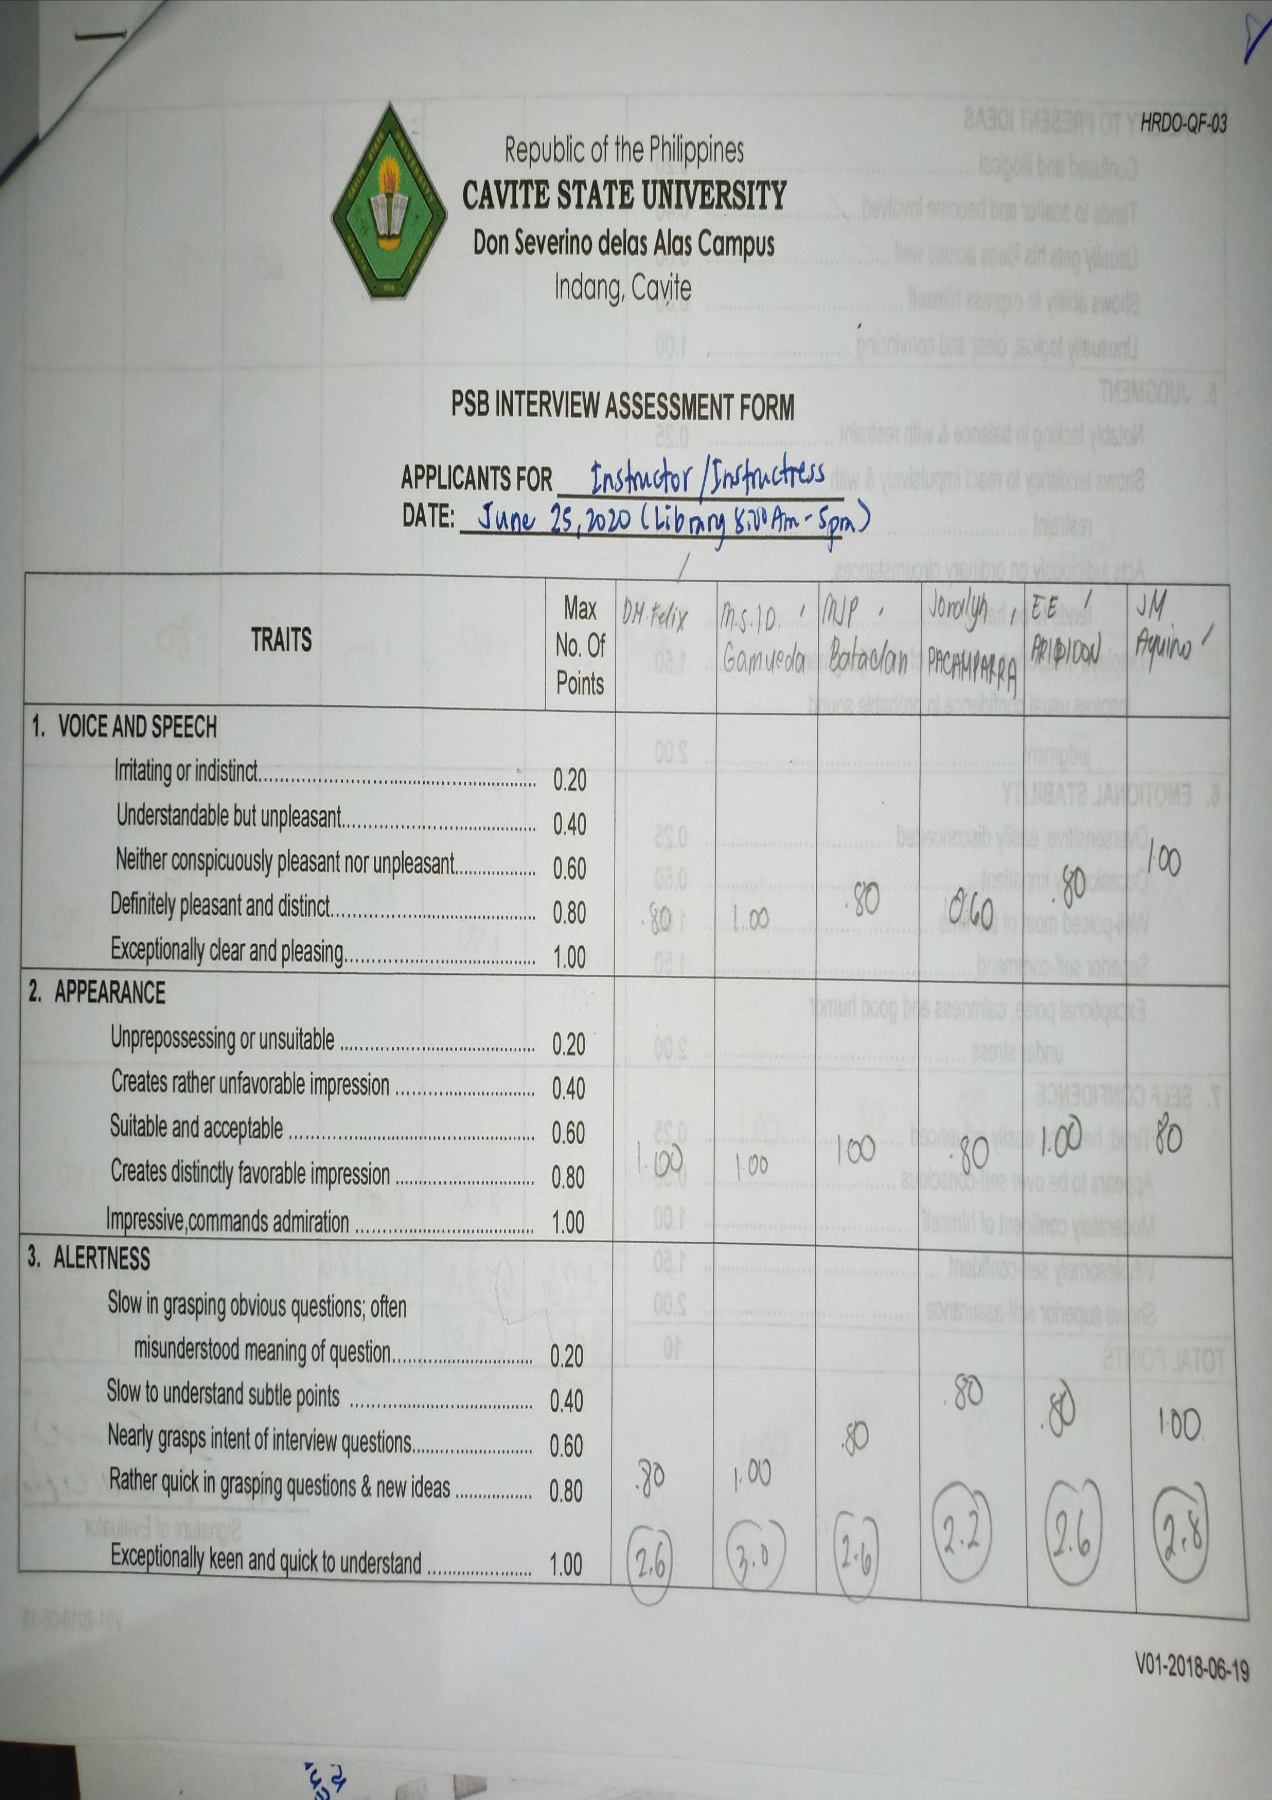 HRDO-QF-03
Republic of the Philippines
CAVITE STATE UNIVERSITY
Don Severino delas Alas Campus
Indang, Cavite
PSB INTERVIEW ASSESSMENT FORM
APPLICANTS FOR Instructor/Instructress
DATE: June 25, 2020 (Library 8:00 Am - 5pm)
TRAITS Max No. Of Points DH. Felix M.S.I.D. Gamueda MJP Bataclan Joralyn PACAMPARRA EE ARIDIDON JM Aquino
1. VOICE AND SPEECH
Irritating or indistinct 0.20
Understandable but unpleasant 0.40
Neither conspicuously pleasant nor unpleasant 0.60
Definitely pleasant and distinct 0.80
Exceptionally clear and pleasing 1.00
.80 1.00 .80 0.60 .80 1.00
2. APPEARANCE
Unprepossessing or unsuitable 0.20
Creates rather unfavorable impression 0.40
Suitable and acceptable 0.60
Creates distinctly favorable impression 0.80
Impressive,commands admiration 1.00
1.00 1.00 1.00 .80 1.00 .80
3. ALERTNESS
Slow in grasping obvious questions; often
misunderstood meaning of question 0.20
Slow to understand subtle points 0.40
Nearly grasps intent of interview questions 0.60
Rather quick in grasping questions & new ideas 0.80
Exceptionally keen and quick to understand 1.00
.80 1.00 .80 .80 .80 1.00
2.6 3.0 2.6 2.2 2.6 2.8
V01-2018-06-19